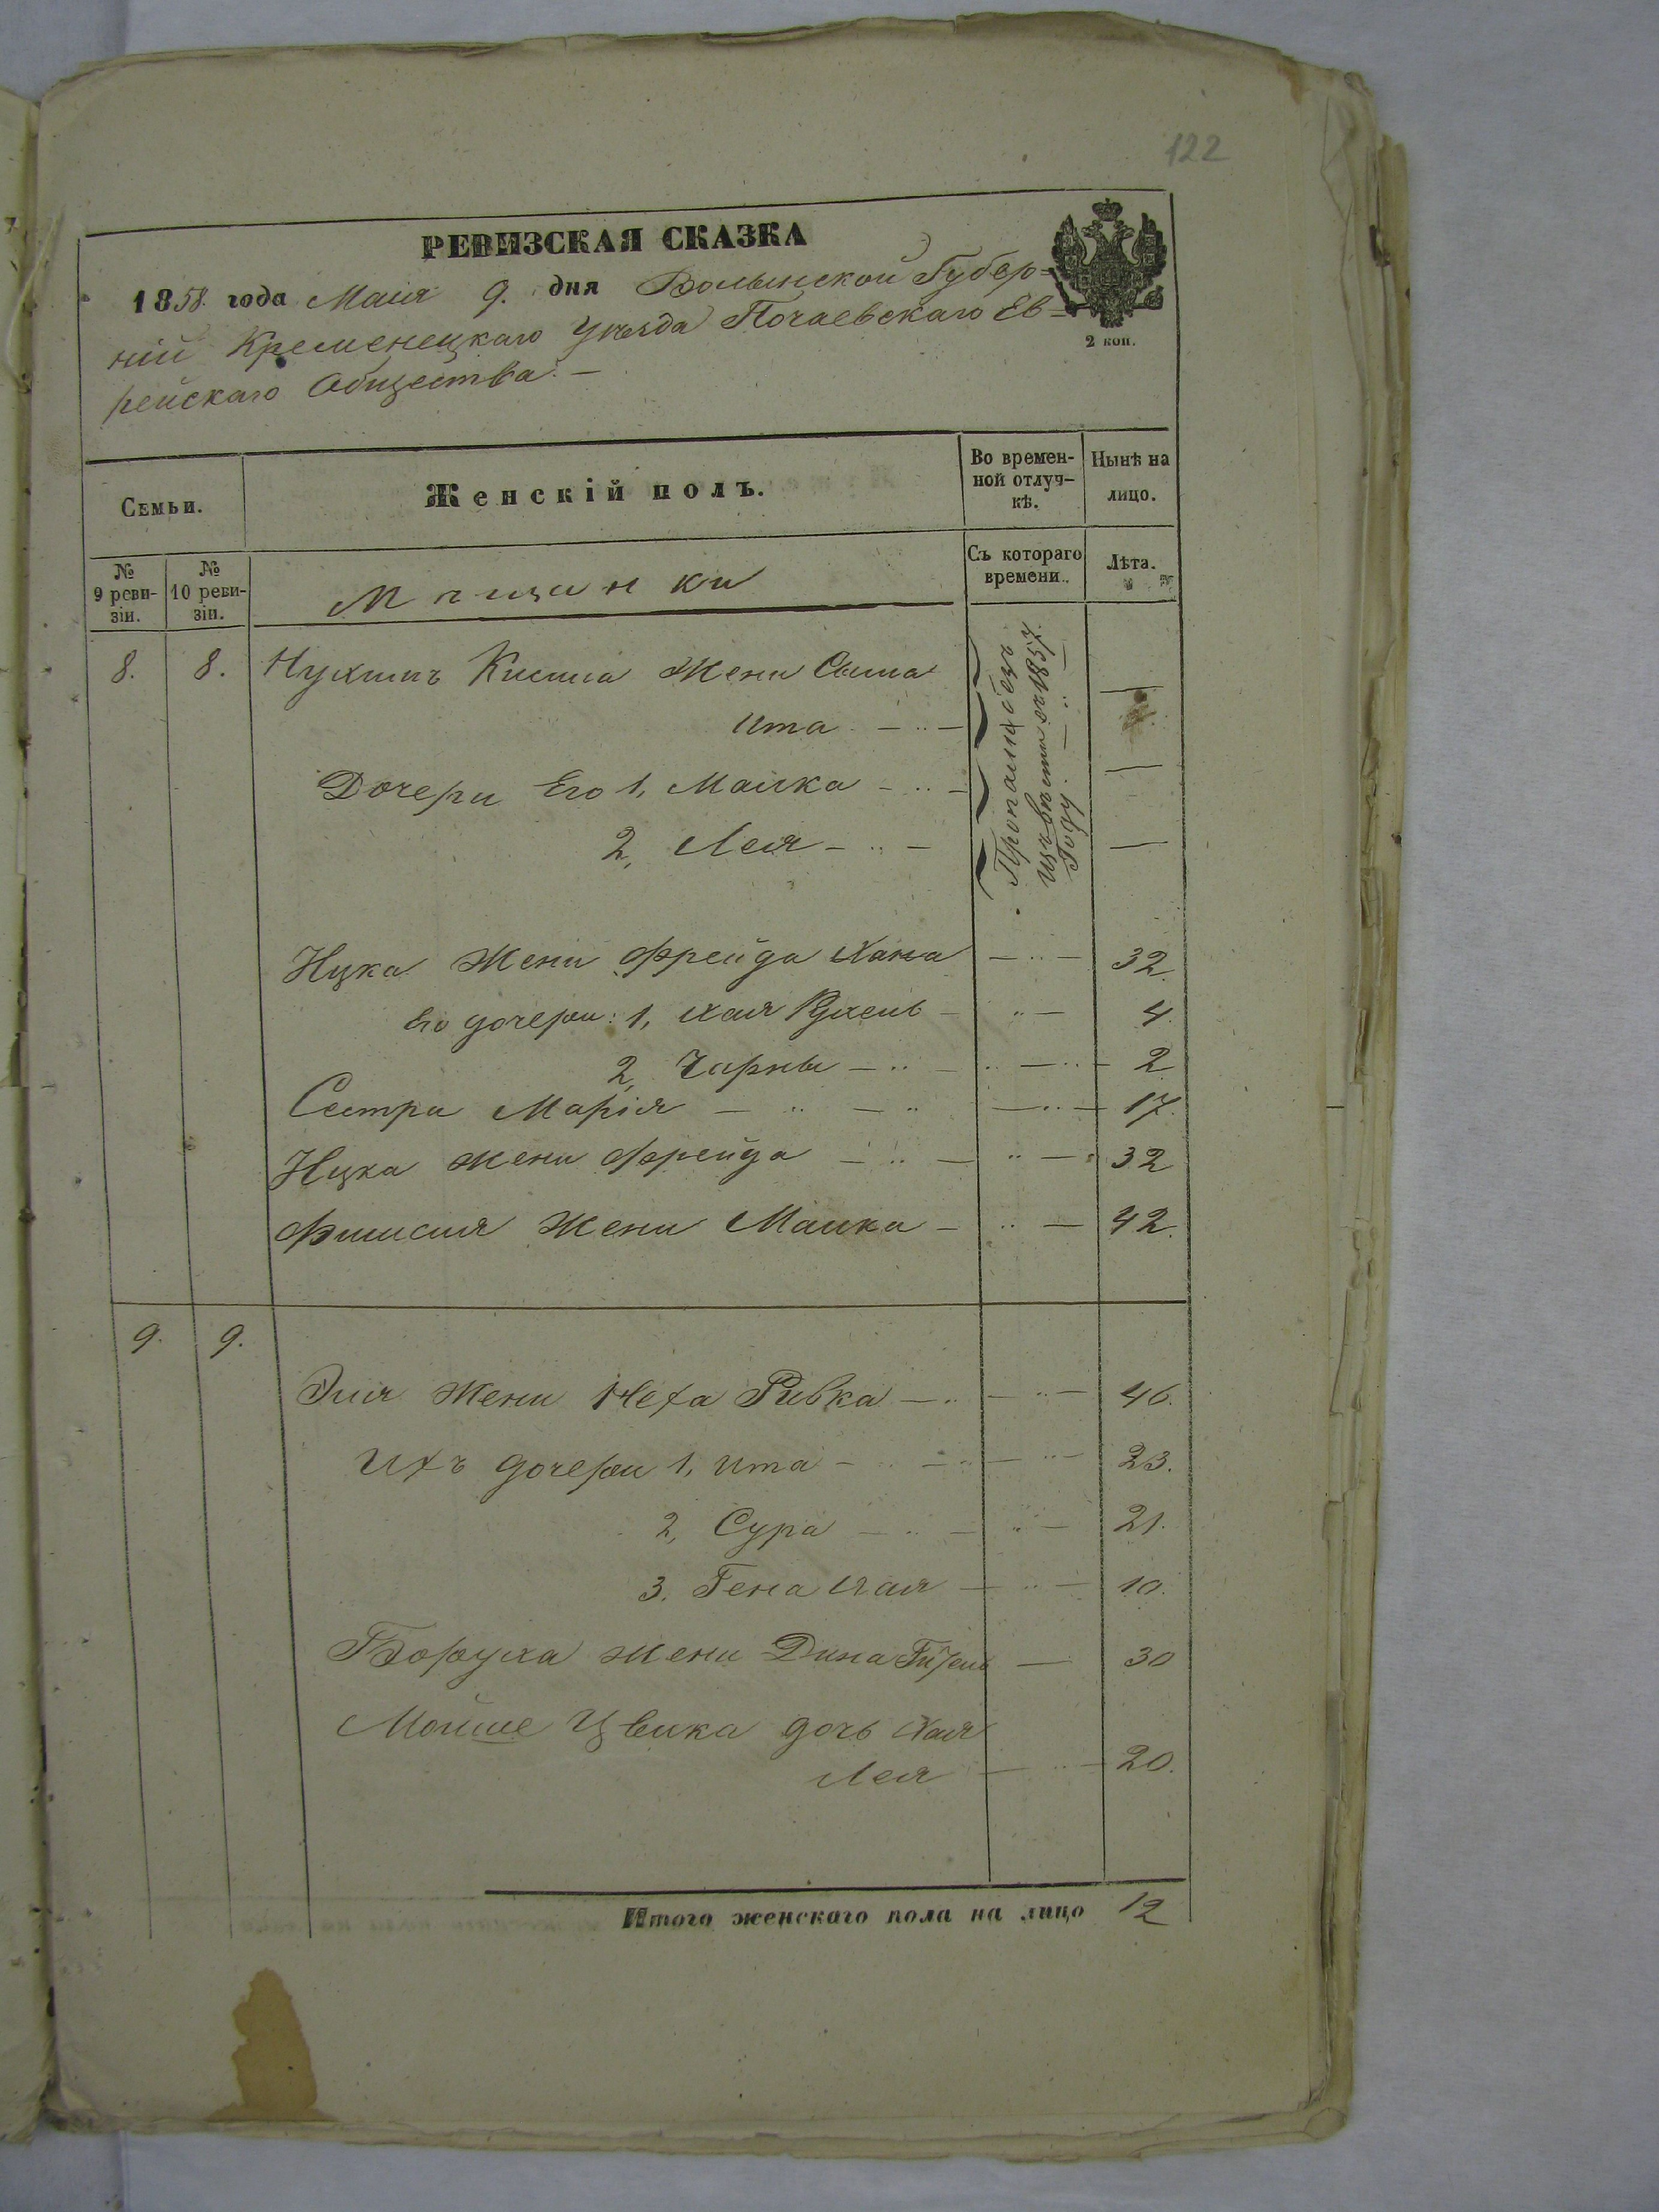 122
РЕВИЗСКАЯ СКАЗКА
1858 года Маія 9. дня Волынской Губер=
ніи Кременецкаго Уѣзда Почаевскаго Ев=
рейскаго Общества. —
2 коп.
Семьи.
Женскій полъ.
Во времен-
ной отлуч-
кѣ.
Нынѣ на
лицо.
№
9 реви-
зіи.
№
10 реви-
зіи.
Мѣщанки
Съ котораго
времени.
Лѣта.
8. 8. Нухимъ Жена
Ита
Дочери Его 1, Малка
2, Лея
Пропали безъ
извѣсти съ 1857.
Году
Ицка Жена Фрейда Хана 32.
Его дочери: 1, Хая Рухель 4.
2, Чарны 2
Сестра Марія 17.
Ицка жена Фрейда 32
Фишеля Жена Малка 42.
9. 9.
Эля Жена Неха Ривка 46.
Ихъ дочери 1, Ита 23.
2, Сура 21.
3. Гена Хая 10.
Боруха жена Дина 30
Мойше Цвика дочь Хая
Лея 20.
Итого женскаго пола на лицо 12